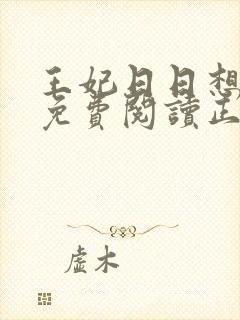 王妃日日想
免費閱讀正
虛木